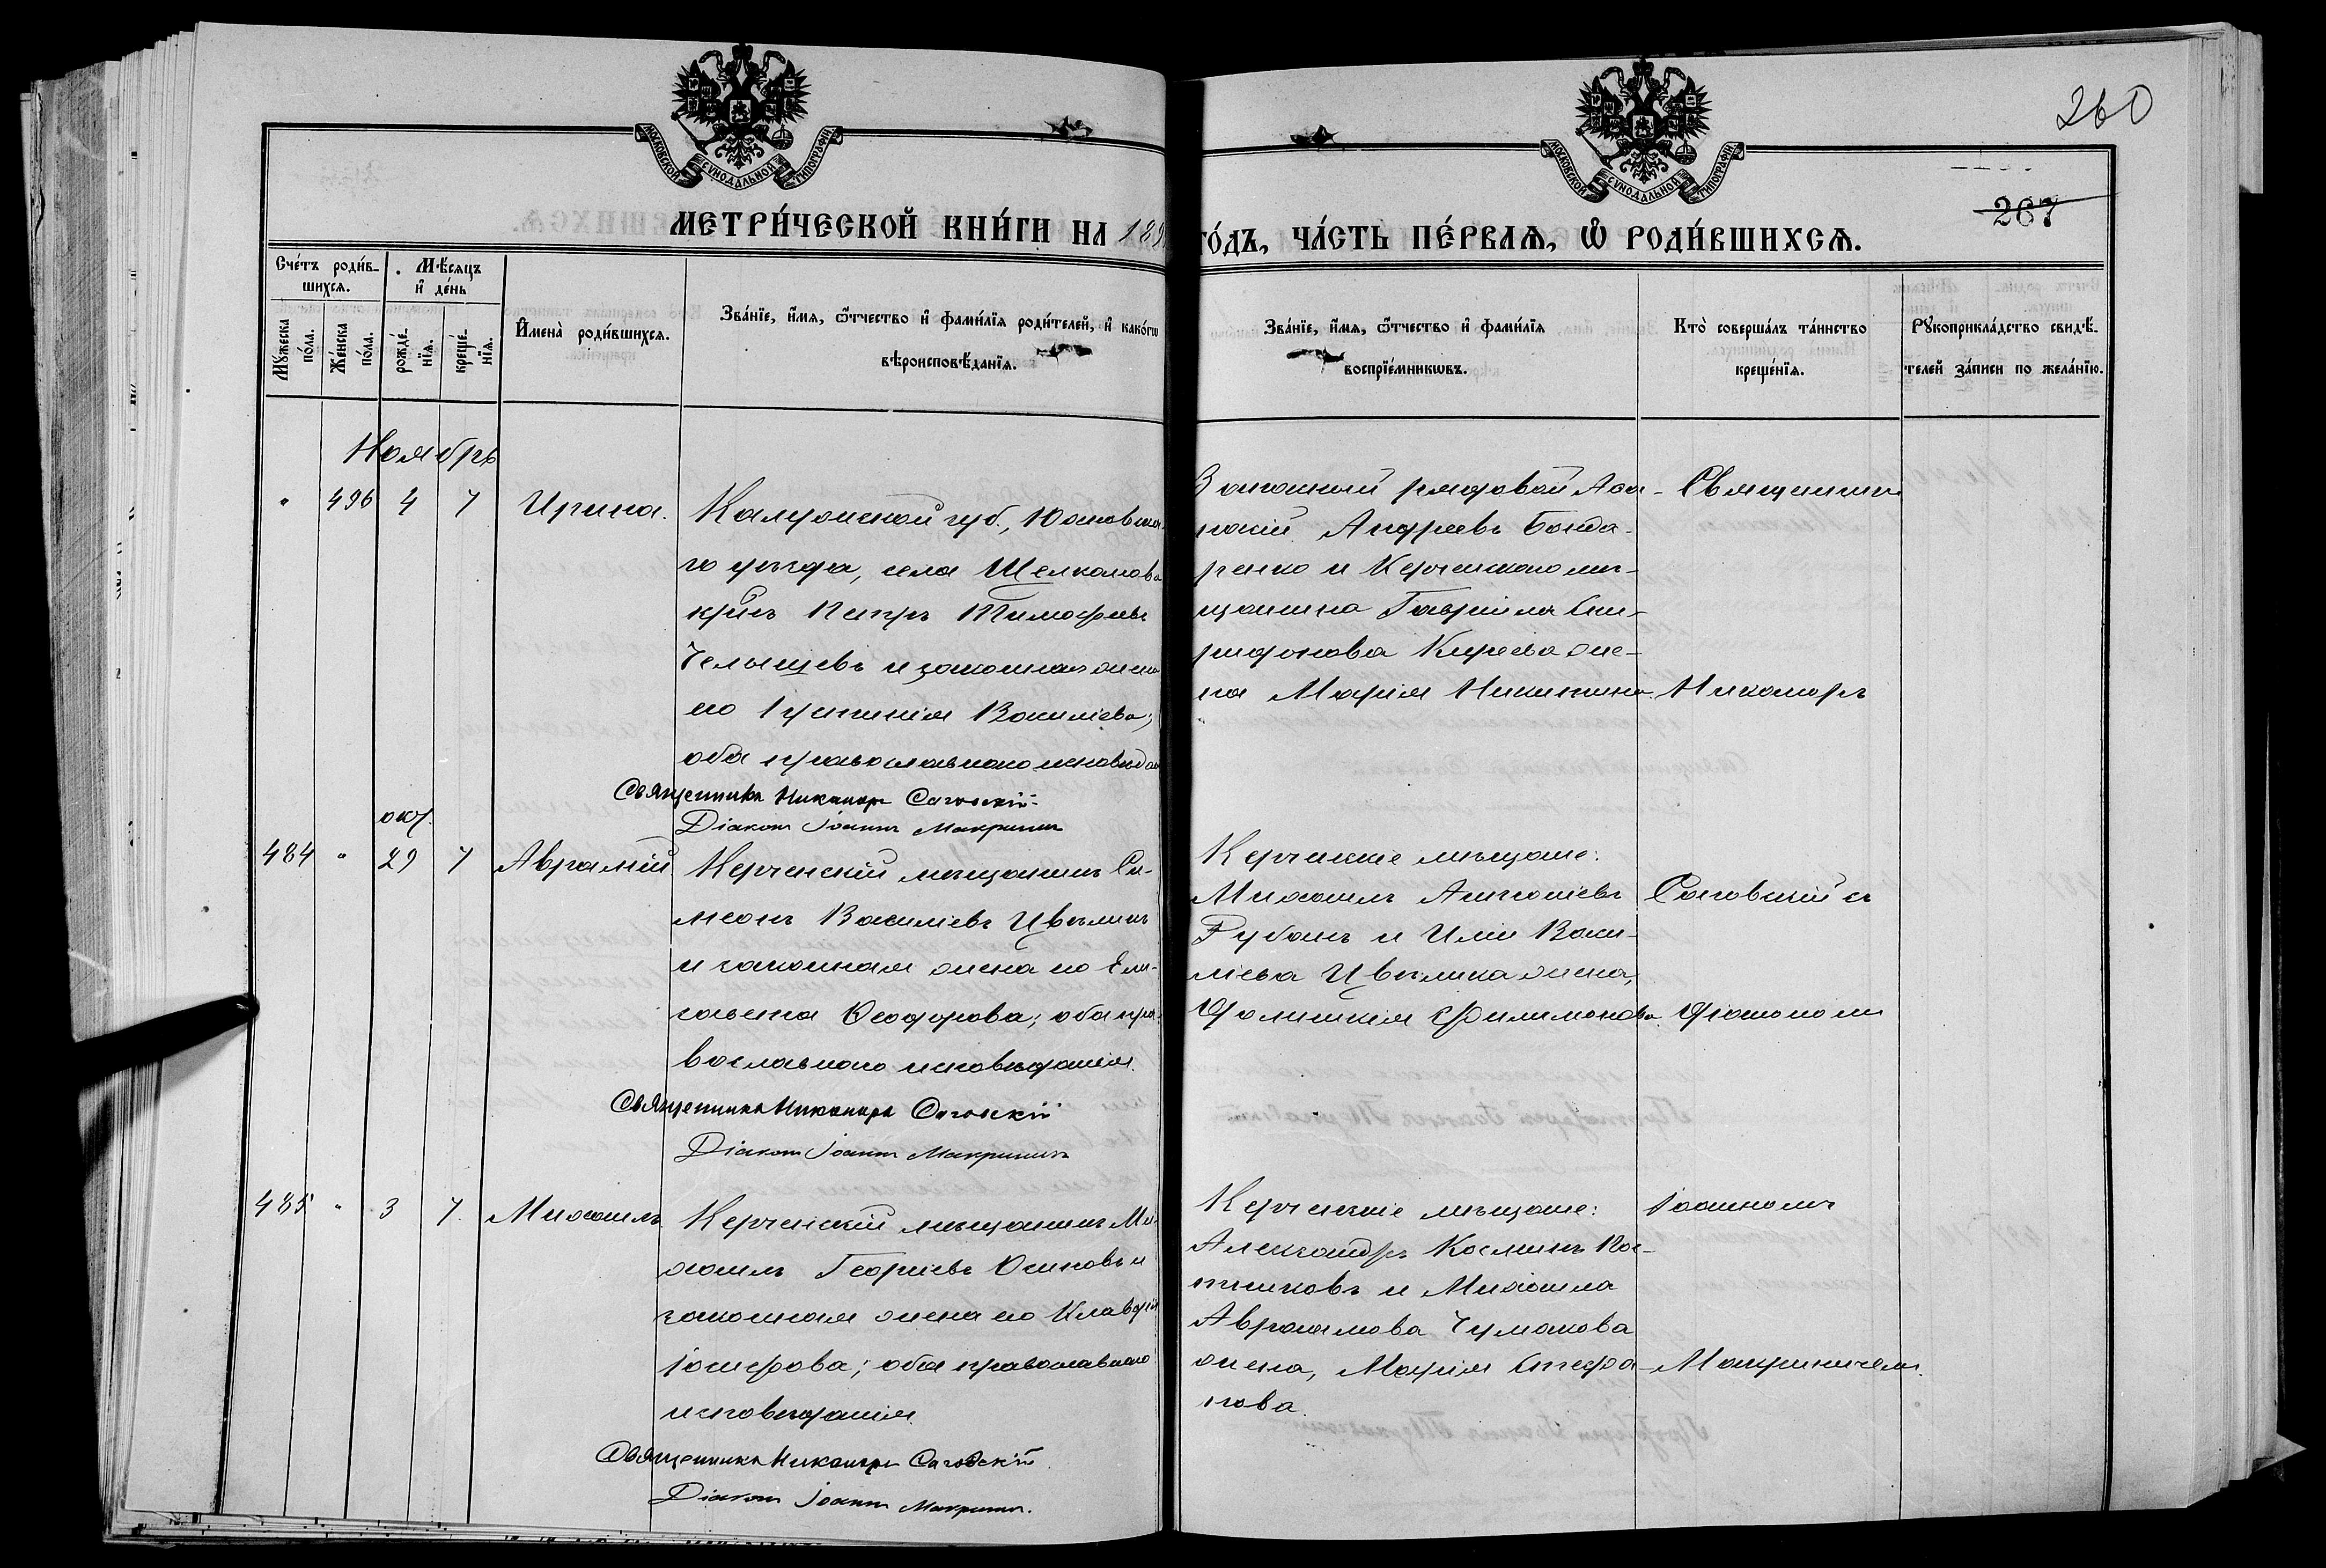 260
267
МОСКОВСКОЙ СѴНОДАЛЬНОЙ ТИПОГРАФІИ
МОСКОВСКОЙ СѴНОДАЛЬНОЙ ТИПОГРАФІИ
МЕТРИ́ЧЕСКОЙ КНИ́ГИ НА 189
ГО́ДЪ, ЧА́СТЬ ПЕ́РВАЯ, Ѡ РОДИ́ВШИХСЯ.
Сче́тъ роди́в-
шихся.
Мѣ́сяцъ
и де́нь
Мꙋ́жеска
по́ла.
Же́нска
по́ла.
рожде́-
нїя.
креще́-
нїя.
Имена̀ роди́вшихся.
Зва́нїе, и́мя, ѻ́тчество и фами́лїя роди́телей, и како́гѡ
вѣроисповѣ́данїя.
Зва́нїе, и́мя, ѻ́тчество и фами́лїя
воспрїе́мникѡвъ.
Кто̀ соверша́лъ та́инство
креще́нїя.
Рꙋкоприкла́дство свидѣ́-
телей за́писи по жела́нїю.
Ноябрь
" 496 4 7 Ирина.
Калужской губ., Юхновска-
го уѣзда, села Щелканова
кр-нъ Петръ Тимофѣевъ
Челыщевъ и законная жена
его Іустинія Васильева;
оба православнаго исповѣдан
Священникъ Никаноръ Саговскій
Діаконъ Іоаннъ Макринич
Запасный рядовой
Андреевъ Бонда-
ренко и Керченскаго мѣ-
щанина Гавріила Спи-
ридонова Кирѣева же-
на Марія Никитина
Священник
Никаноръ
окт.
484 " 29 7 Аврамій
Керченскій мѣщанинъ Си-
меонъ Васильевъ Цвѣликъ
и законная жена его Ели-
савета Ѳеодорова; оба пра-
вославнаго исповѣданія.
Священникъ Никаноръ Саговскій
Діаконъ Іоаннъ Макриничъ
Керченскіе мѣщане:
Михаилъ Антоніевъ
Рубанъ и Иліи Васи-
льева Цвѣлика жена,
Филимонова.
Саговскій съ
діакономъ
485 " 3 7. Михаилъ
Керченскій мѣщанинъ Ми-
хаилъ Георгіевъ Осиповъ и
законная жена его Клавдія
Іосифова; оба православнаго
исповѣданія.
Священникъ Никаноръ Саговскій
Діаконъ Іоаннъ Макринич.
Керченскіе мѣщане:
Александръ Косминъ Пос-
тниковъ и Михаила
Авраамова Чумакова
жена, Марія Стефа-
нова.
Іоанномъ
Макриничемъ.